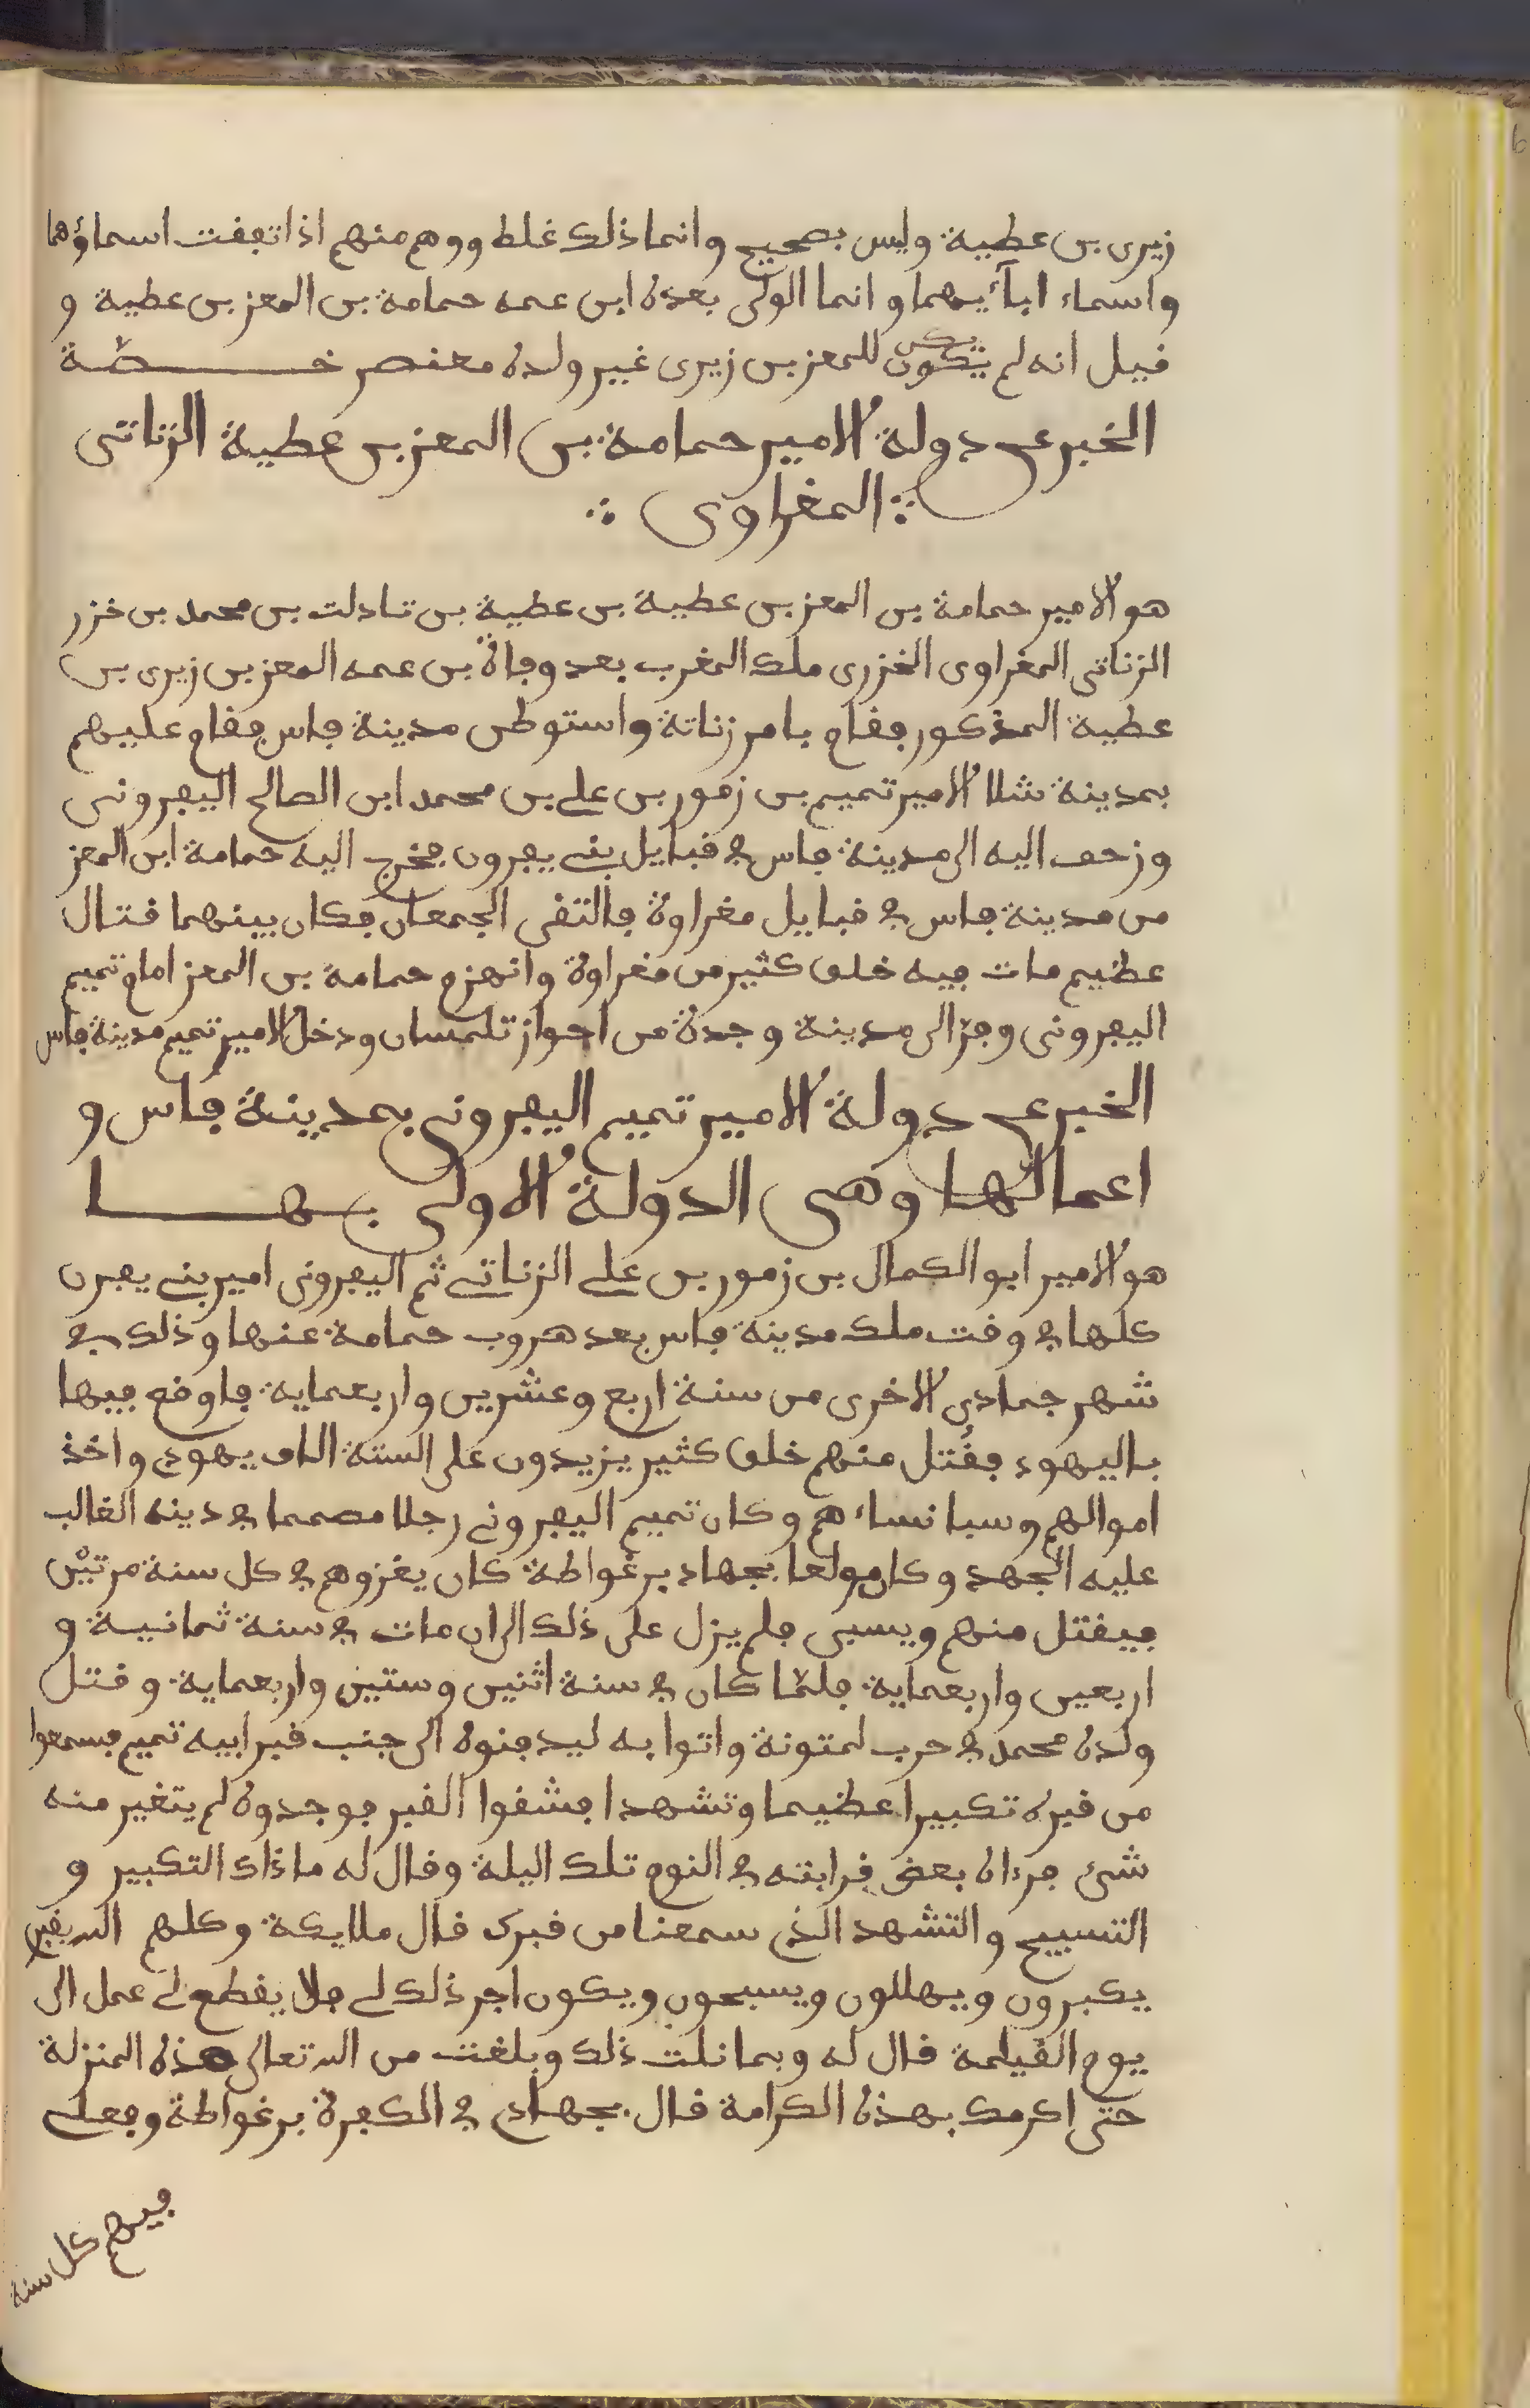 زيرى بن عطية وليس بصحيح وانما ذلك غلط ووهم منهم اذ اتفقت اسماؤهما
واسماء ابآئيهما وانما الولى بعده ابن عمه حمامة بن المعز بن عطية و
قيل انه لم يكون يكن للمعز بن زيرى غير ولده معنصر خـــطـة
الخبر عن دولة الامير حمامة بن المعز بن عطية الزناتى
المغراوى
هو الامير حمامة بن المعز بن عطية بن عطية بن تادلت بن محمد بن خزر
الزناتى المغراوى الخزرى ملك المغرب بعد وفاة بن عمه المعز بن زيرى بن
عطية المذكور فقام بامر زناتة واستوطن مدينة فاس فقام عليهم
بمدينة شلا الامير تميم بن زمور بن على بن محمد ابن الصالح اليفرونى
وزحف اليه الى مدينة فاس فى قبايل بنى يفرون فخرج اليه حمامة ابن المعز
من مدينة فاس فى قبايل مغراوة فالتقى الجمعان فكان بينهما قتال
عظيم مات فيه خلق كثير من مغراوة وانهزم حمامة بن المعز امام تميم
اليفرونى وفرّ الى مدينة وجدة من احواز تلمسان ودخل الامير تميم مدينة فاس
الخبر عن دولة الامير تميم اليفرونى بمدينة فاس و
اعمالها وهى الدولة الاولى بهـــا
هو الامير ابو الكمال بن زمور بن على الزناتى ثم اليفرونى امير بنى يفرن
كلها فى وقت ملك مدينة فاس بعد هروب حمامة عنها وذلك فى
شهر جمادى الاخرى من سنة اربع وعشرين واربعماية فاوقع فيها
باليهود فقُتل منهم خلق كثير يزيدون على الستة الاف يهودى واخذ
اموالهم وسبا نساءهم وكان تميم اليفرونى رجلا مصمما فى دينه الغالب
عليه الجهد وكان مولعا بجهاد برغواطة كان يغزوهم فى كل سنة مرتيْن
فيقتل منهم ويسبى فلم يزل على ذلك الى ان مات فى سنة ثمانية و
اربعين واربعماية فلمّا كان فى سنة اثنين وستين واربعماية وقتل
ولده محمد فى حرب لمتونة واتوا به ليدفنوه الى جنب قبر ابيه تميم فسمعوا
من قبره تكبيرا عظيما وتشهدا فشقوا القبر فوجدوه لم يتغير منه
شىء فرءاه بعض قرابته فى النوم تلك اليلة وقال له ما ذاك التكبير و
التسبيح والتشهد الذى سمعنا من قبرك قال ملايكة وكلهم الله بقبرى
يكبرون ويهللون ويسبحون ويكون اجر ذلك لى فلا يقطع لى عمل الى
يوم القيمة قال له وبما نلت ذلك وبلغت من الله تعالى هذه المنزلة
حتى اكرمك بهذه الكرامة قال بجهادى فى الكفرة برغواطة وفعلى
فيهم كل سنة